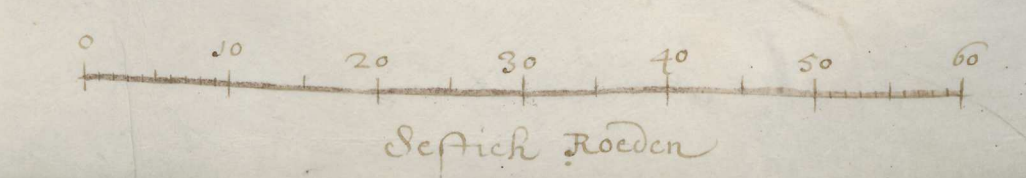 0 10 20 30 40 50 60
Sestich Roeden